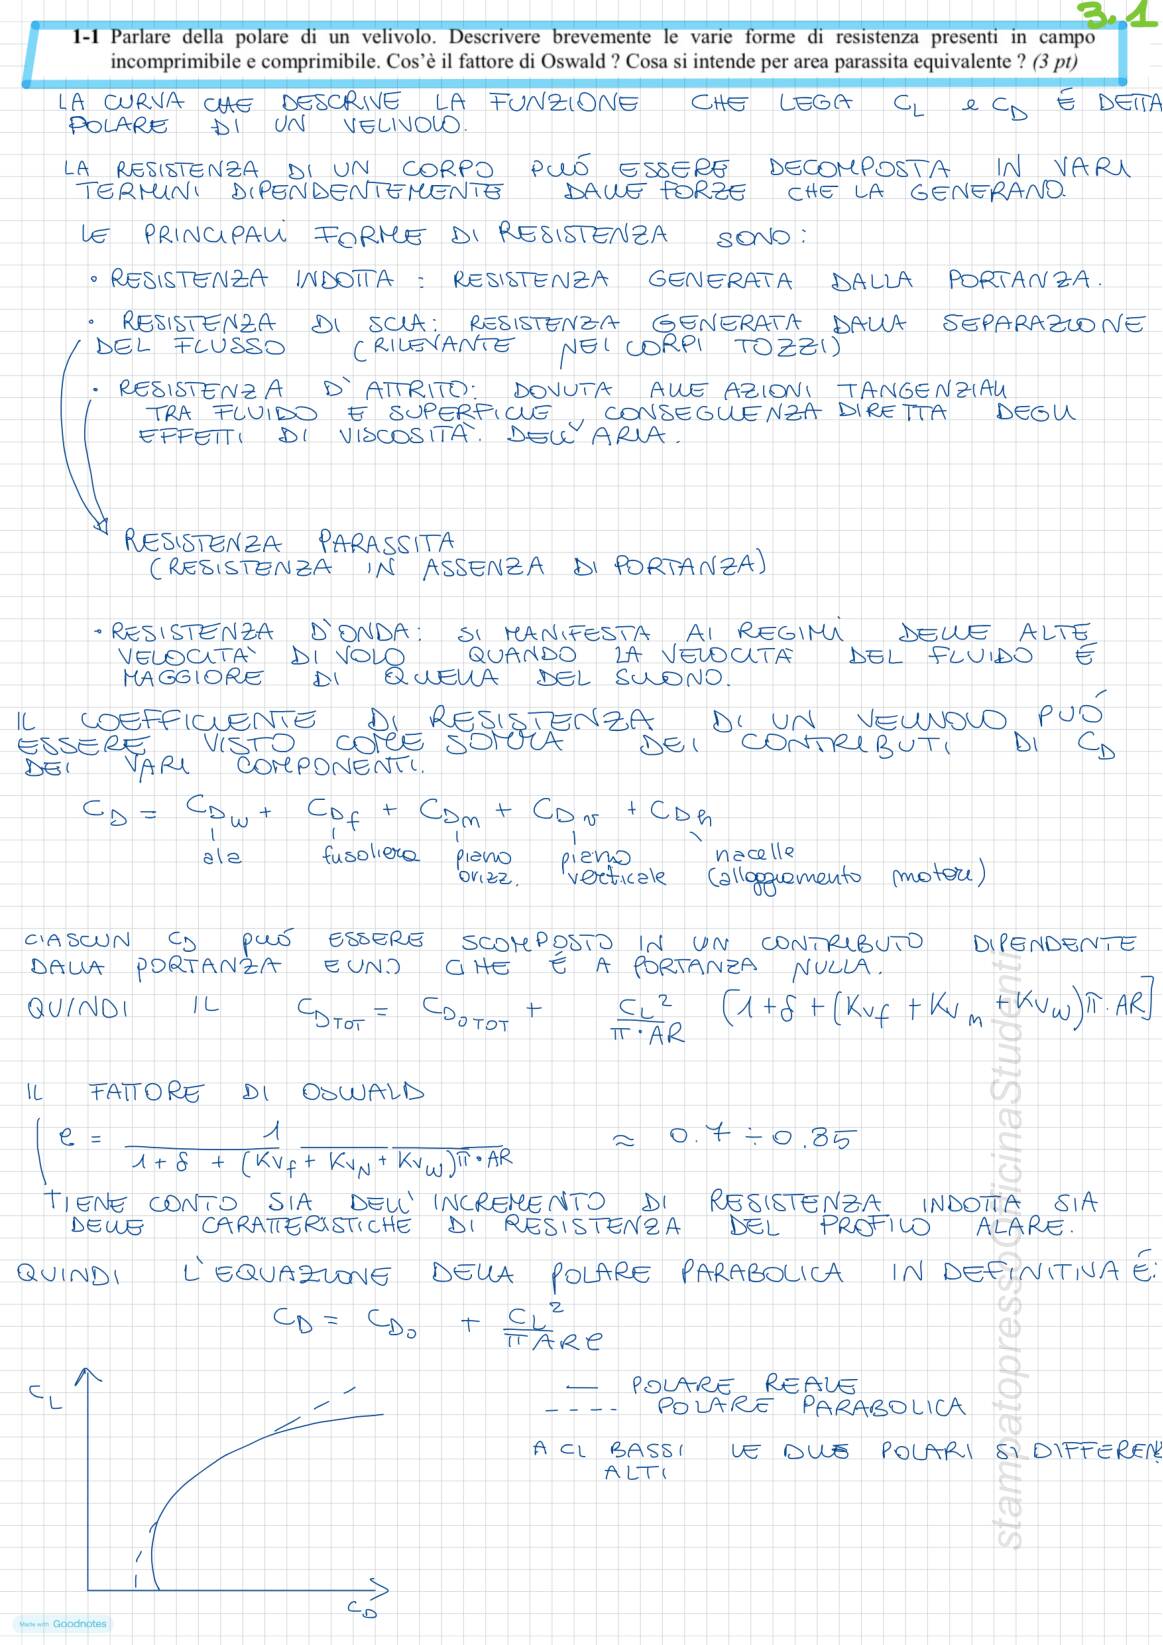 3.1
1-1 Parlare della polare di un velivolo. Descrivere brevemente le varie forme di resistenza presenti in campo
incomprimibile e comprimibile. Cos'è il fattore di Oswald ? Cosa si intende per area parassita equivalente ? (3 pt)
LA CURVA CHE DESCRIVE LA FUNZIONE CHE LEGA CL e CD É DETTA
POLARE DI UN VELIVOLO.
LA RESISTENZA DI UN CORPO PUÓ ESSERE DECOMPOSTA IN VARI
TERMINI DIPENDENTEMENTE DALLE FORZE CHE LA GENERANO.
LE PRINCIPALI FORME DI RESISTENZA SONO:
• RESISTENZA INDOTTA : RESISTENZA GENERATA DALLA PORTANZA.
• RESISTENZA DI SCIA: RESISTENZA GENERATA DALLA SEPARAZIONE
DEL FLUSSO (RILEVANTE NEI CORPI TOZZI)
• RESISTENZA D'ATTRITO: DOVUTA ALLE AZIONI TANGENZIALI
TRA FLUIDO E SUPERFICIE CONSEGUENZA DIRETTA DEGLI
EFFETTI DI VISCOSITA'. DELL'ARIA.
RESISTENZA PARASSITA
(RESISTENZA IN ASSENZA DI PORTANZA)
• RESISTENZA D'ONDA: SI MANIFESTA AI REGIMI DELLE ALTE
VELOCITA' DI VOLO QUANDO LA VELOCITA DEL FLUIDO É
MAGGIORE DI QUELLA DEL SUONO.
IL COEFFICIENTE DI RESISTENZA DI UN VELIVOLO PUÓ
ESSERE VISTO COME SOMMA DEI CONTRIBUTI DI CD
DEI VARI COMPONENTI.
CD = CDw + CDf + CDm + CDv + CDh
ala fusoliera piano piano nacelle
orizz. verticale (alloggiamento motore)
CIASCUN CD PUÓ ESSERE SCOMPOSTO IN UN CONTRIBUTO DIPENDENTE
DALLA PORTANZA E UNO CHE É A PORTANZA NULLA.
QUINDI IL CDTOT = CD0TOT + CL²/π·AR [1+δ+(Kvf + Kvm + Kvw)π·AR]
IL FATTORE DI OSWALD
e = 1/1+δ + (Kvf + KvN + Kvw)π·AR ≈ 0.7 ÷ 0.85
TIENE CONTO SIA DELL'INCREMENTO DI RESISTENZA INDOTTA SIA
DELLE CARATTERISTICHE DI RESISTENZA DEL PROFILO ALARE.
QUINDI L'EQUAZIONE DELLA POLARE PARABOLICA IN DEFINITIVA É:
CD = CD0 + CL²/πARe
CL
— POLARE REALE
---- POLARE PARABOLICA
A CL BASSI LE DUE POLARI SI DIFFEREN
ALTI
CD
stampatopressoOfficinaStudenti
Made with Goodnotes